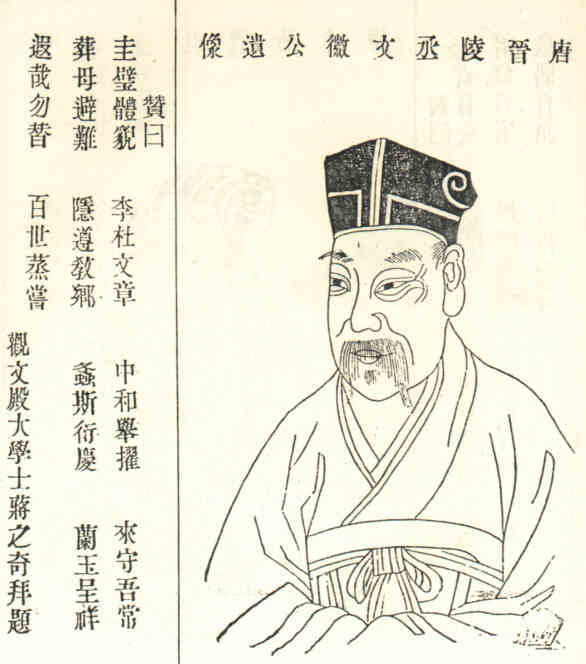 唐晉陵丞文徵公遺像
贊曰
圭璧體貌 李杜文章 中和舉擢 來守吾常
葬母避難 隱遵教鄉 螽斯衍慶 蘭玉呈祥
遐哉勿替 百世蒸嘗
觀文殿大學士蔣之奇拜題